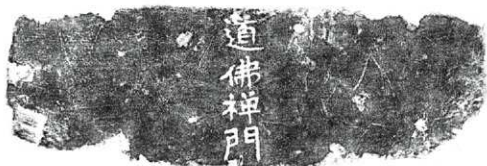 道佛禅門